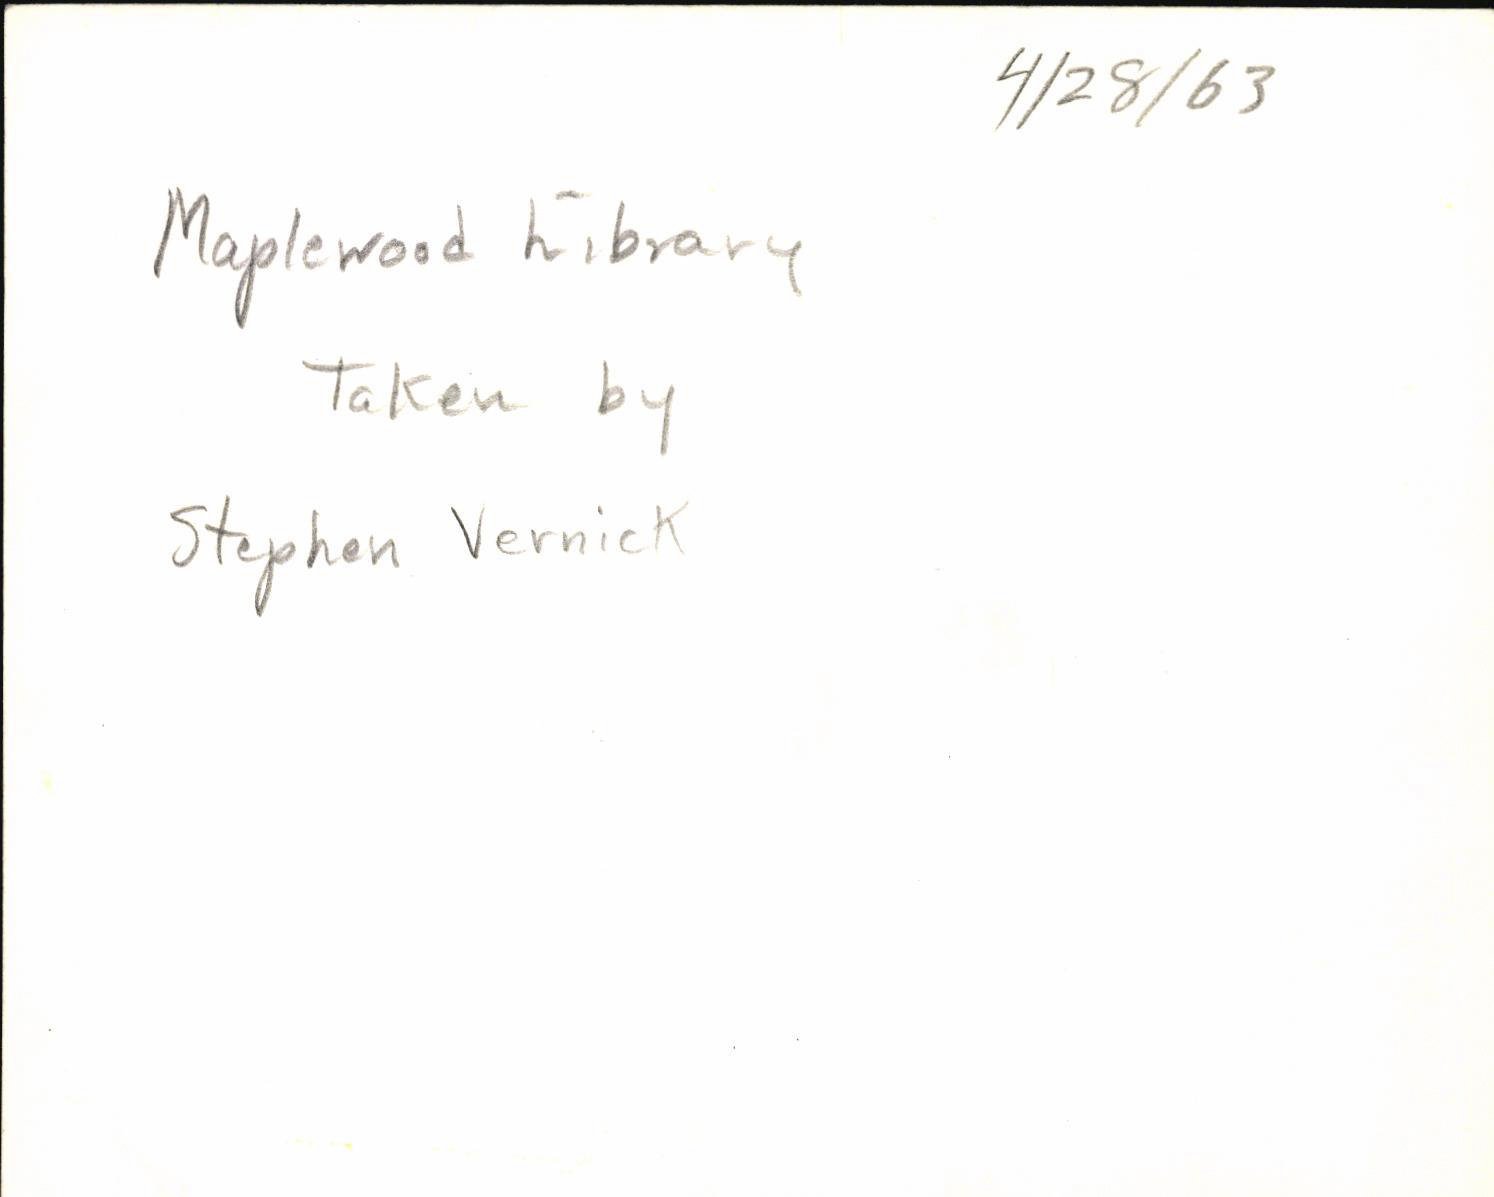 4/28/63
Maplewood Library
Taken by
Stephen Vernick